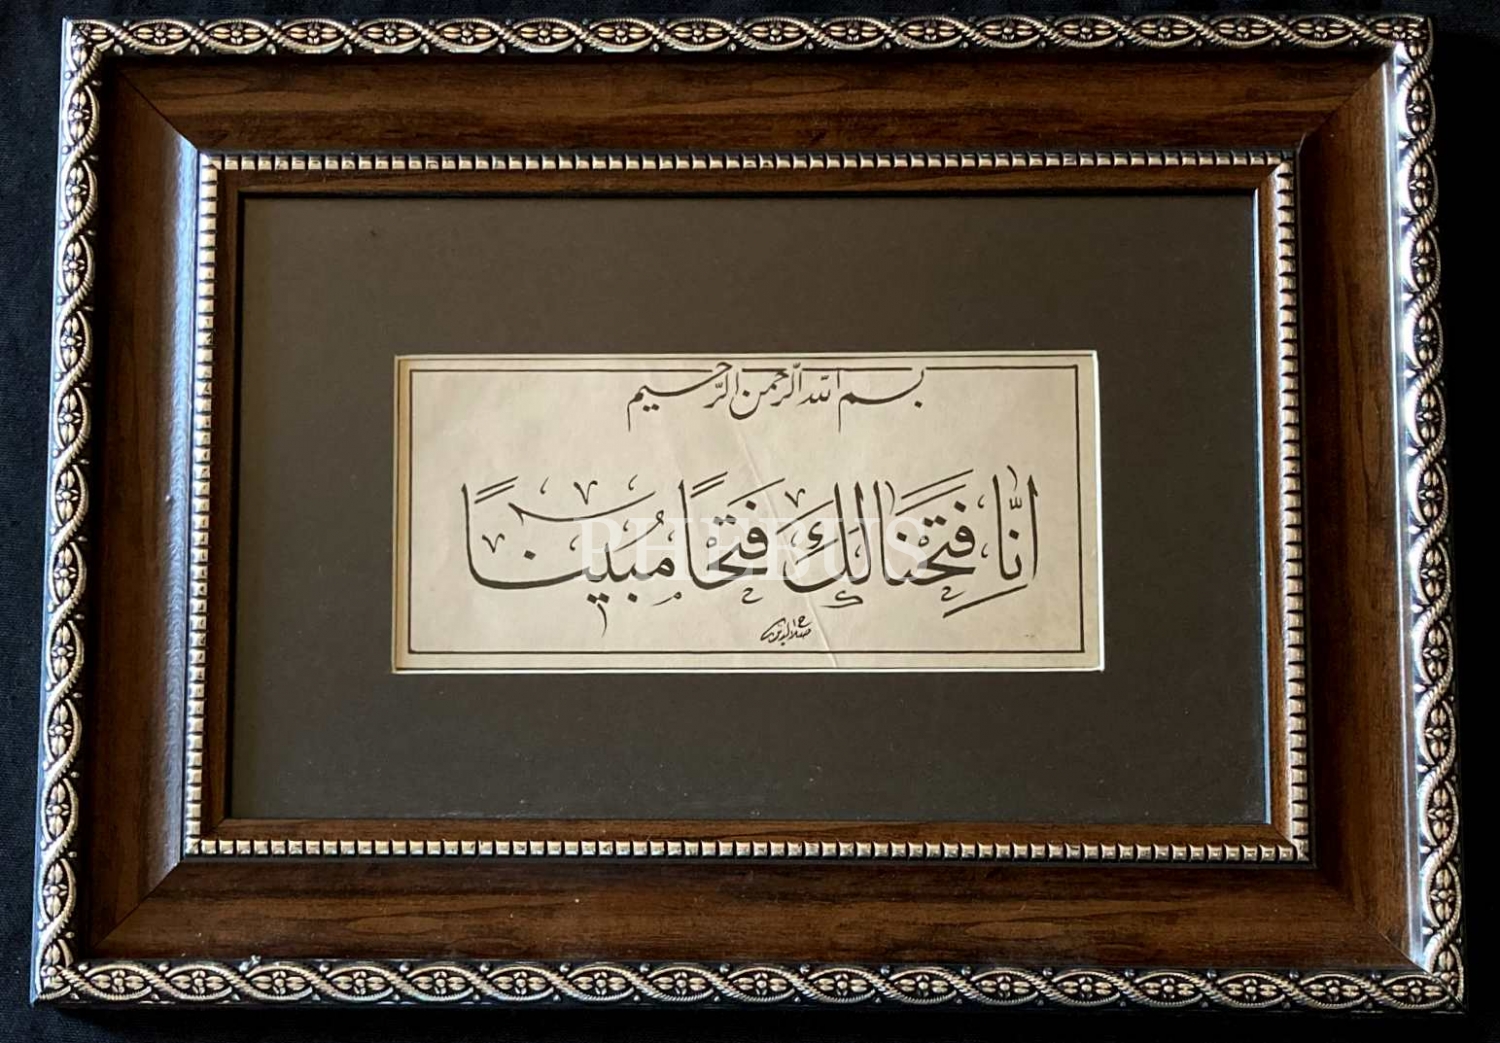 بسم الله الرحمن الرحيم
اِنَّا فَتَحْنَا لَكَ فَتْحًا مُبِينًا
PHEBUS